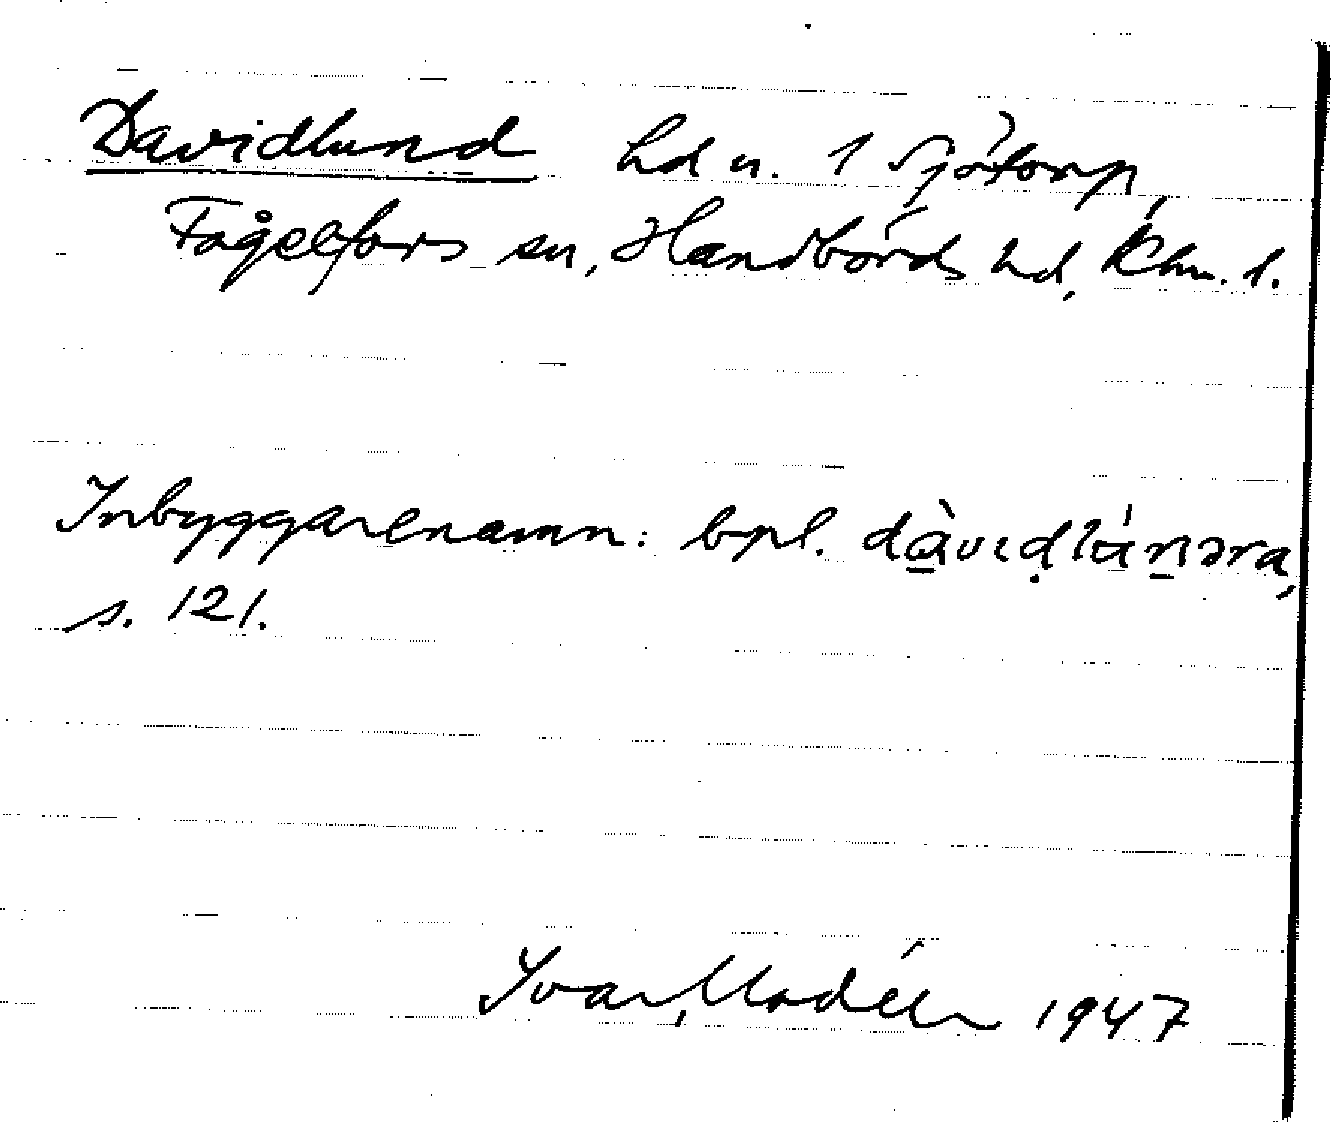 Davidlund hd u. 1 Sjötorp,
Fågelfors sn, Handbörds hd, Klm. l.
Inbyggarenamn: bpl. dàvıdlúnəra,
s. 121.
Ivar Modéer 1947